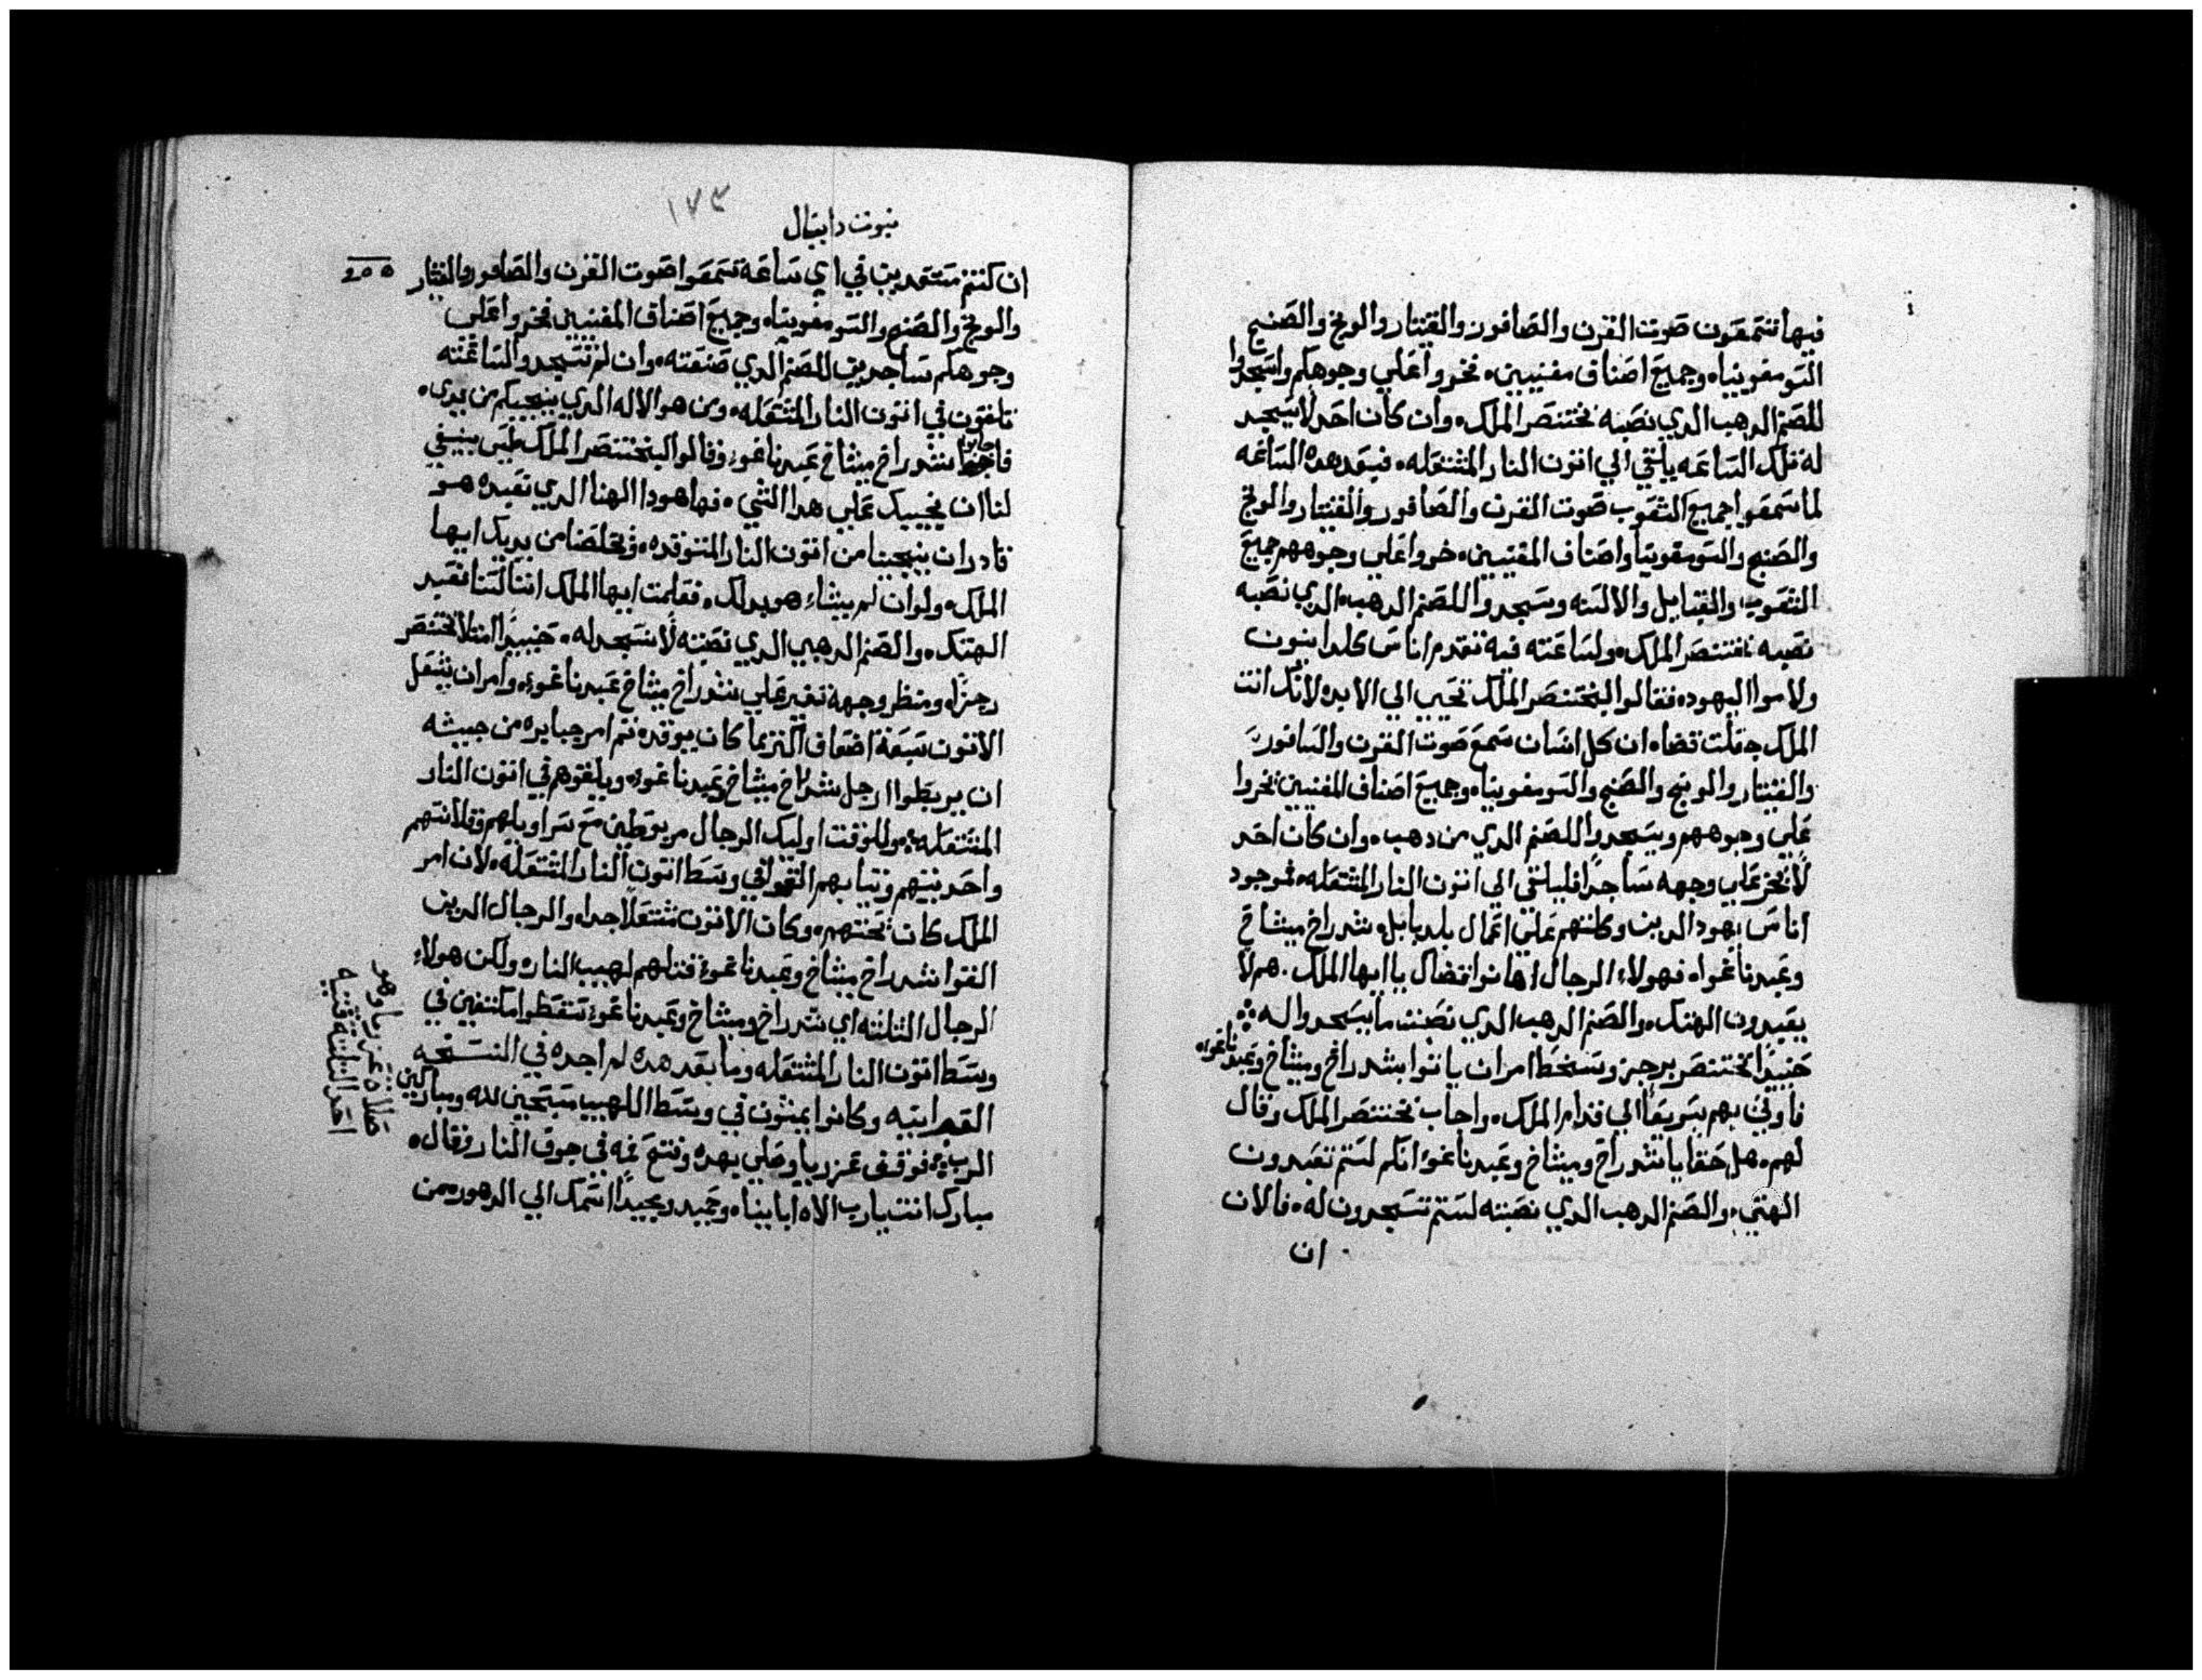 فيها تسمعون صوت القرن والصافور والقيتار والونج والصنج
السومفونياه وجميع اصناف مغنيين، فخروا علي وجوهكم واسجدوا
للصنم الدهب الدي نصبه بختنصر الملك، وان كان احد لا يسجد
له تلك الساعه يلقي الي اتون النار المشتعله، فبعد هده الساعه
لما سمعوا جميع الشعوب صوت القرن والصافور والقيتار والونج
والصنج والسومفونيا واصناف المغنيين، خروا علي وجوههم جميع
الشعوب والقبايل والالسنه وسجدوا للصنم الدهب الدي نصبه
نصبه بختنصر الملك، ولساعته فيه تقدم اناس كلدانيون
ولاموا اليهود، فقالوا لبختنصر الملك تحيي الي الابد، لانك انت
الملك جعلت قضاه ان كل انسان سمع صوت القرن والسافور
والقيتار والونج والصنج والسومفونياه وجميع اصناف المغنيين يخروا
علي وجوههم ويسجدوا للصنم الدي من دهب، وان كان احد
لا يخر علي وجهه ساجدا فليلقي الي اتون النار المشتعله، فموجود
اناس يهود الدين وكلتهم علي اعمال بلد بابل، شدراخ ميشاخ
وعبدناغواه فهولاء الرجال اهانوا قضاك يا ايها الملك. هم لا
يعبدون الهتك، والصنم الدهب الدي نصبت ما يسجدوا له ؞
حنيدا بختنصر برجز وسخط امر ان ياتوا بشدراخ وميشاخ وعبدناغواه
فاوتي بهم سريعا الي قدام الملك، واجاب بختنصر الملك وقال
لهم، هل حقا يا شدراخ وميشاخ وعبدناغوا انكم لستم تعبدون
الهتي، والصنم الدهب الدي نصبته لستم تسجدون له، فالان
ان
نبوت دانيال
١٧٣
ان كنتم مستعدين في اي ساعه تسمعوا صوت القرن والصافور والقيثار
والونج والصنج والسومفونياه وجميع اصناف المغنيين فخروا علي
وجوهكم ساجدين للصنم الدي صنعته، وان لم تسجدوا لساعته
تلقون في اتون النار المشتعله، ومن هو الاله الدي ينجيكم من يدي،
فاجابوا شدراخ ميشاخ عبدناغوء وقالوا لبختنصر الملك ليس ينبغي
لنا ان نجيبك علي هدا الشي، فها هودا الهنا الدي نعبده هو
قادر ان ينجينا من اتون النار المتوقده، ويخلصنا من يديك ايها
الملك، ولو ان لم يشاء هو بدلك، فعلمت ايها الملك اننا لسنا نعبد
الهتك، والصنم الدهبي الدي نصبته لا نسجد له، حنييدا امتلا بختنصر
رجزاه ومنظر وجهه تغير علي شدراخ ميشاخ عبدناغوء، وامر ان يشعل
الاتون سبعة اضعاف اكتر مما كان يوقده، تم امر جبابره من جيشه
ان يربطوا ارجل شدراخ ميشاخ وعبدناغوء، ويلقوهم في اتون النار
المشتعله، وللوقت اوليك الرجال مربوطين مع سراويلهم وقلانسهم
واحد بينهم وتيابهم القوا في وسط اتون النار المشتعله، لان امر
الملك كان تحتهم، وكان الاتون مشتعلا جدا، والرجال الدين
القوا شدراخ ميشاخ وعبدناغوء قتلهم لهيب النار، ولكن هولاء
الرجال التلتته اي شدراخ وميشاخ وعبدناغوء سقطوا مكتفين في
وسط اتون النار المشتعله وما بعد هده لم اجده في النسخه
العبرانيه وكانوا يمشون في وسط اللهيب مسبحين لله ومباركين
الرب، فوقف عزريا وصلي بهده وفتح فمه في جوف النار وقال،
مبارك انت يارب الاه اباينا، ومجيد ومجيدا اسمك الي الدهور، من
صلاة عزريا وهو
احد التلتة فتيه